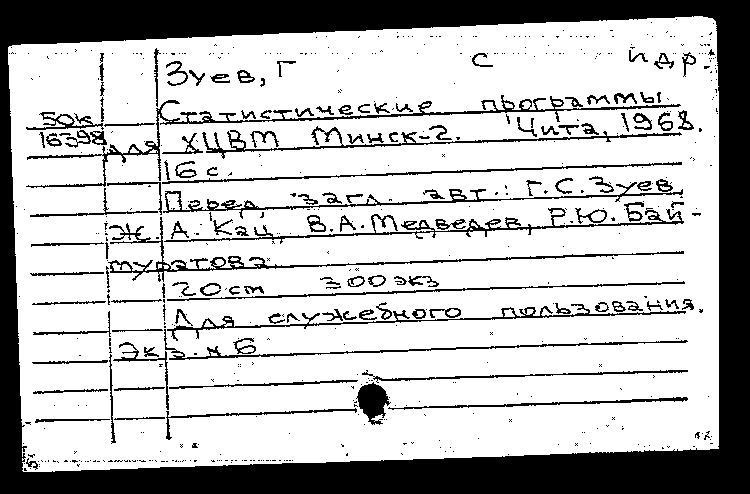 Зуев, Г С и др.
50к Статистические программы
16398 для ХЦВМ Минск-2. Чита, 1968.
16 с.
Перед загл. авт.: Г.С. Зуев,
Ж. А. Кац, В.А. Медведев, Р.Ю. Бай-
муратова.
20 cm 300 экз
Для служебного пользования.
Экз. н Б